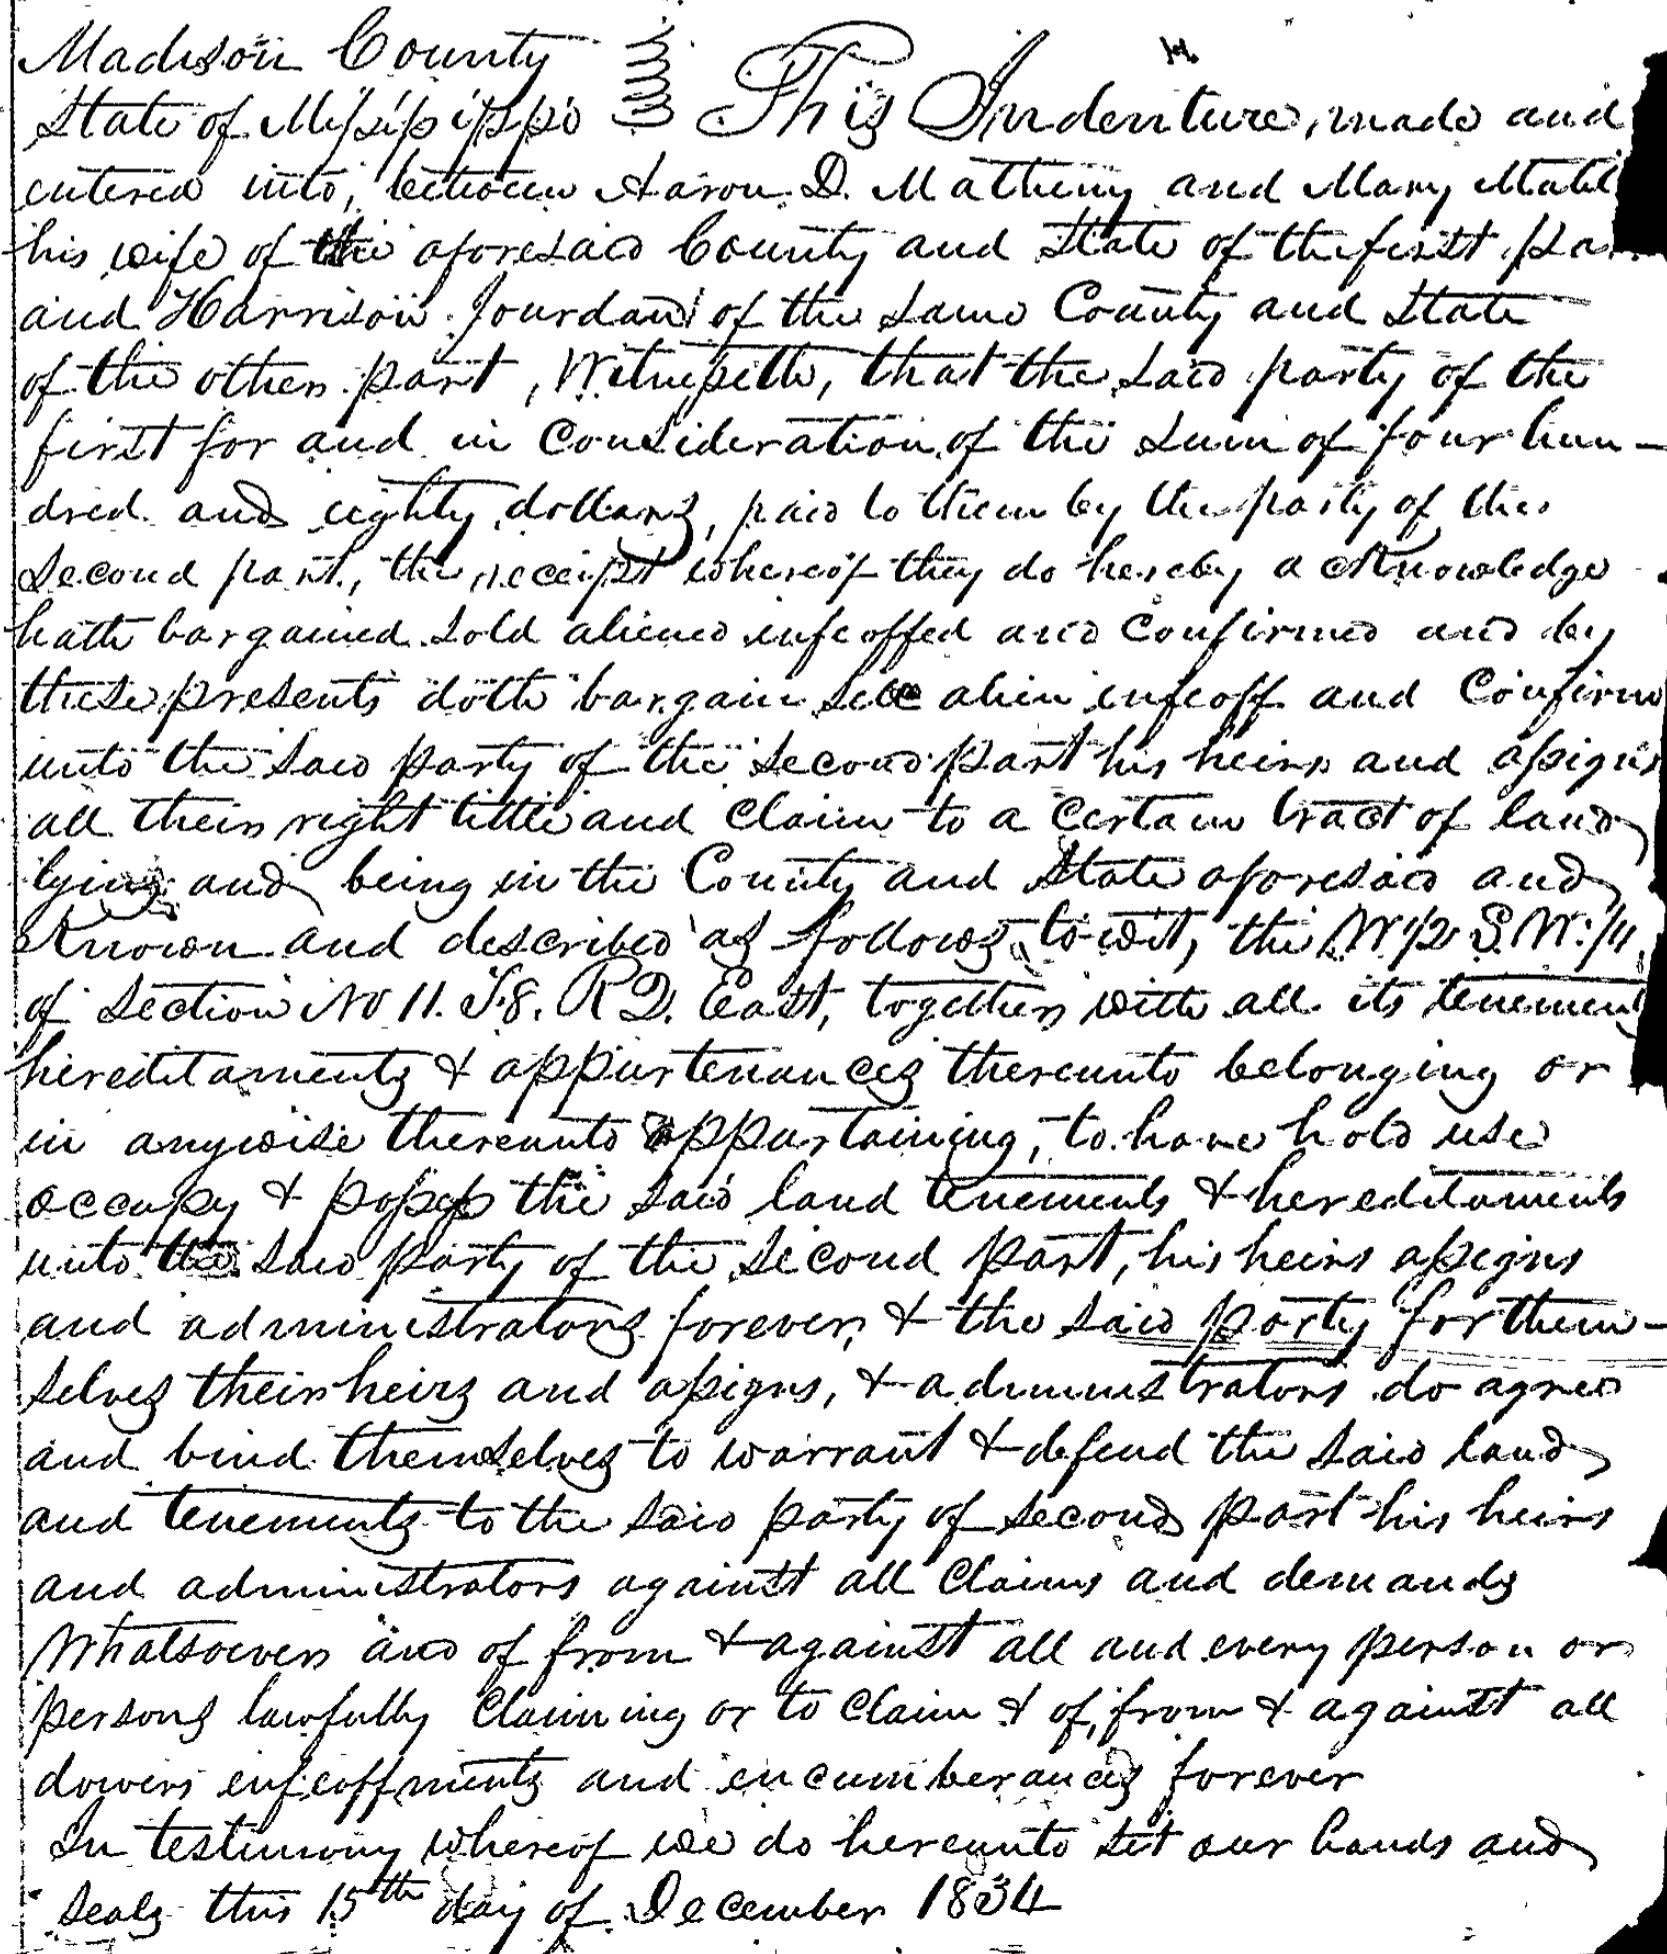 Madison County
State of Mississippi This Indenture, made and
entered into, between Aaron D. Matheny and Mary
his wife of the aforesaid County and State of the first
and Harrison Jourdan of the same County and State
of the other part, Witnesseth, that the said party of the
first for and in Consideration of the sum of four hun-
dred and eighty dollars, paid to them by the party of the
second part, the receipt whereof they do hereby acknowledge
hath bargained sold aliened enfeoffed and Confirmed and by
these presents doth bargain sell alien enfeoff and Confirm
unto the said party of the second part his heirs and assigns
all their right tittle and Claim to a Certain tract of land
lying and being in the County and State aforesaid and
Known and described as follows, to-wit, the W 1/2 S.W. 1/4
of Section No 11. T.8. R 2. East, together with all its
hereditaments & appurtenances thereunto belonging or
in anywise thereunto appurtaining, to have hold use
occupy & possess the said land tenements & hereditaments
unto the said party of the second part, his heirs assigns
and administrators forever, & the said party for them-
selves their heirs and assigns, & administrators do agree
and bind themselves to warrant & defend the said land
and tenements to the said party of second part his heirs
and administrators against all Claims and demands
Whatsoever and of from & against all and every person or
persons lawfully Claiming or to Claim & of, from & against all
dowers enfeoffments and encumberances forever
In testimony whereof we do hereunto set our hands and
seals this 15th day of December 1834